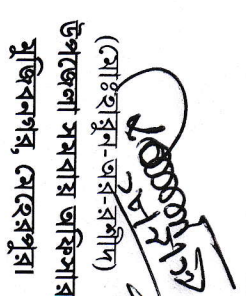 (মোঃ হারুন-অর-রশীদ)
উপজেলা সমবায় অফিসার
মুজিবনগর, মেহেরপুর।